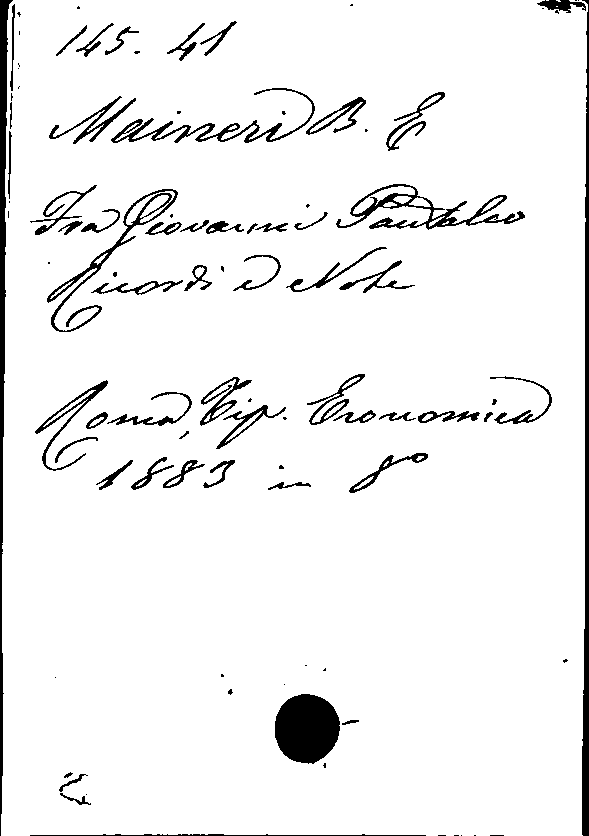 145. 41
Maineri B. E
Fra Giovanni Pantaleo
Ricordi e Note
Roma, Tip. Economica
1883 in 8º